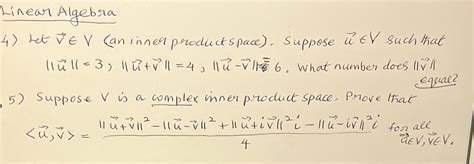 Linear Algebra
4) Let v⃗ ∈ V (an inner product space). Suppose u⃗ ∈ V such that
||u⃗|| = 3, ||u⃗+v⃗|| = 4, ||u⃗-v⃗|| = 6. What number does ||v⃗||
equal?
5) Suppose V is a complex inner product space. Prove that
<u⃗,v⃗> = (||u⃗+v⃗||² - ||u⃗-v⃗||² + ||u⃗+iv⃗||² i - ||u⃗-iv⃗||² i) / 4 for all u⃗∈V, v⃗∈V.